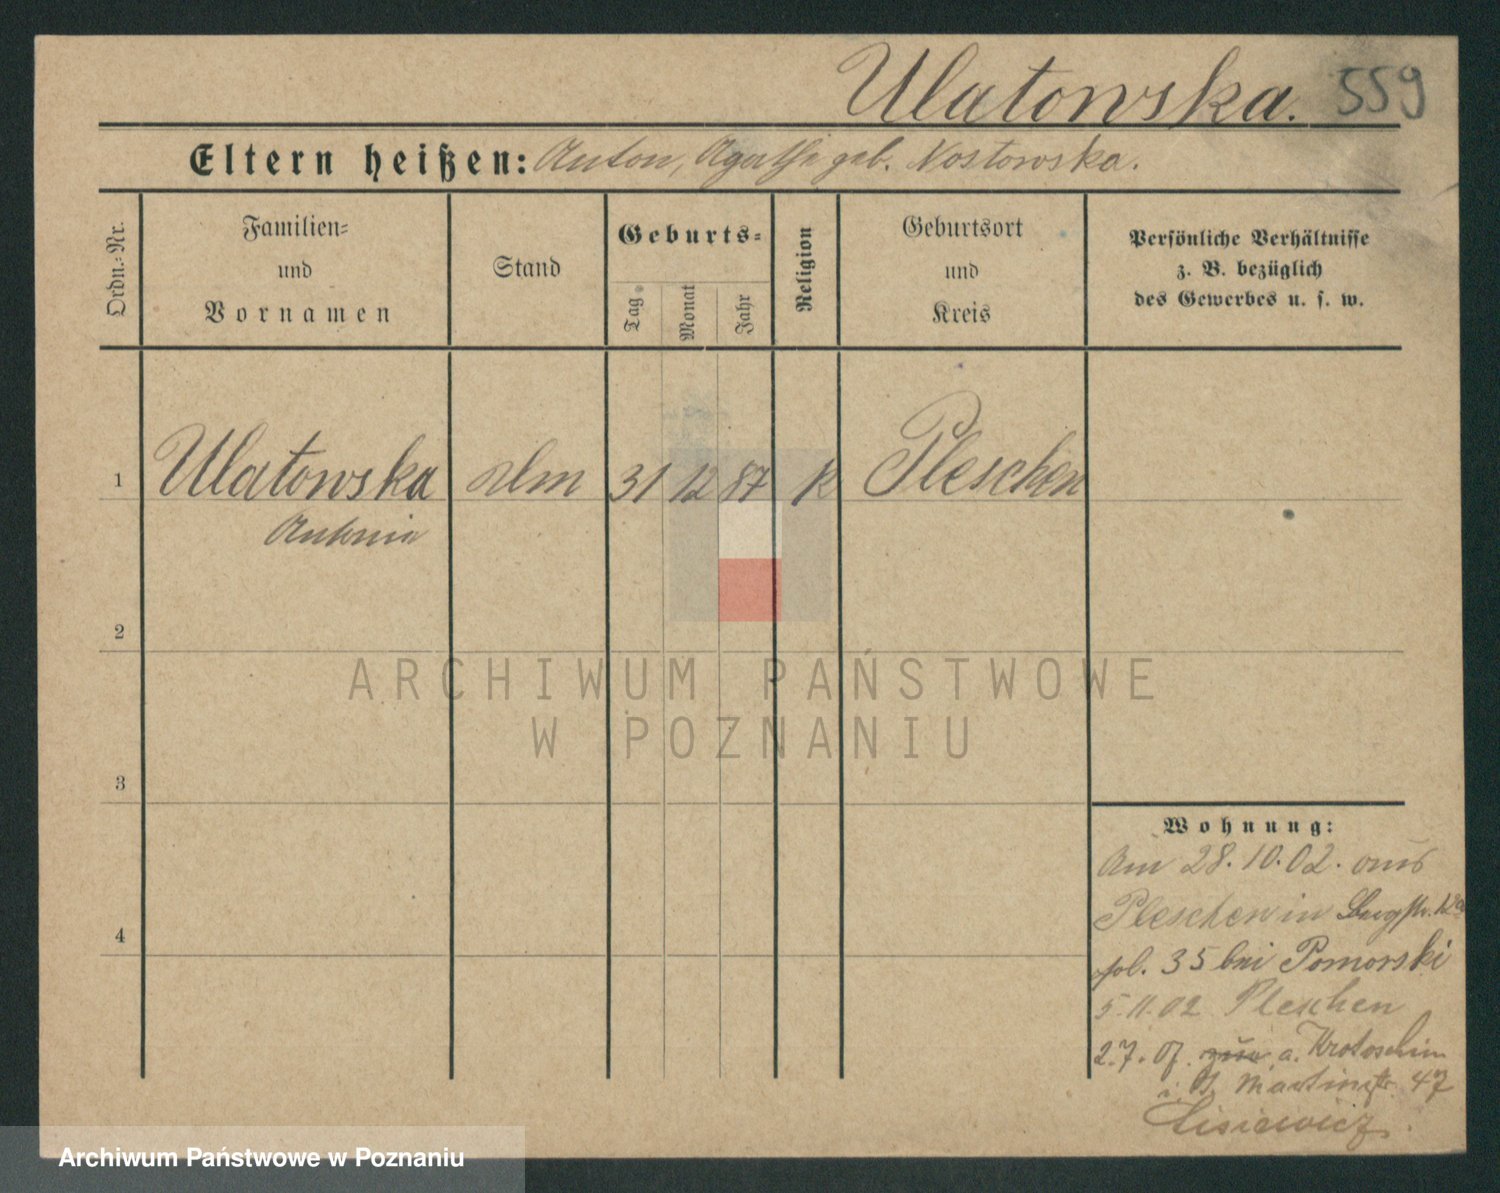 Ulatowska. 559
Eltern heißen: Anton, Agathe geb. Nostowska.
Ordn.-Nr.
Familien-
und
Vornamen
Stand
Geburts-
Tag
Monat
Jahr
Religion
Geburtsort
und
Kreis
Persönliche Verhältnisse
z. B. bezüglich
des Gewerbes u. s. w.
1 Ulatowska 31 12 87 K Pleschen
Antonia
2
3
4
Wohnung:
Am 28.10.02. aus
Pleschen in
pol. 35 bei Pomorski
5.11.02 Pleschen
2.7.07. a. Krotoschin
Martinstr. 47
Lisiewicz.
ARCHIWUM PAŃSTWOWE
W POZNANIU
Archiwum Państwowe w Poznaniu